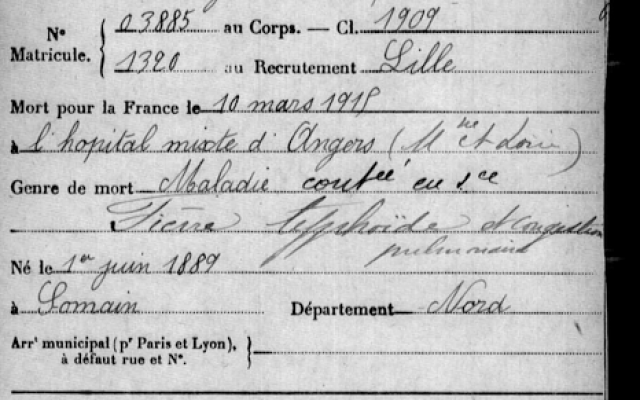 Nº Matricule. { 03885 au Corps. — Cl. 1909
1320 au Recrutement Lille
Mort pour la France le 10 mars 1915
à l'hopital mixte d'Angers (Mne et Loire)
Genre de mort Maladie contée en sce
Fièvre typhoïde et congestion
pulmonaire
Né le 1er juin 1889
à Somain Département Nord
Arrt municipal (pr Paris et Lyon),
à défaut rue et Nº.